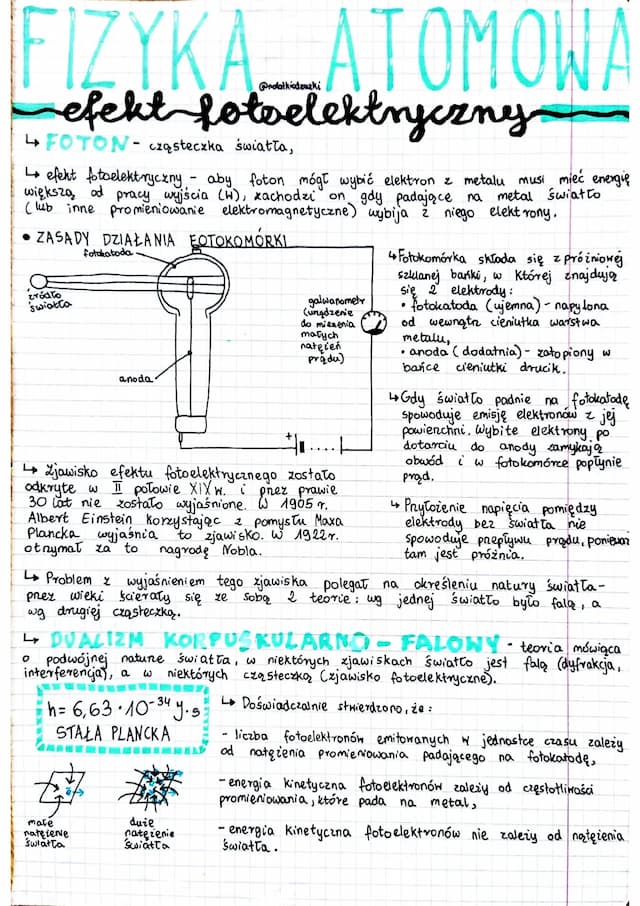 FIZYKA ATOMOWA
@notatkiodzuzki
efekt fotoelektryczny
↳ FOTON - cząsteczka światła,
↳ efekt fotoelektryczny - aby foton mógł wybić elektron z metalu musi mieć energię
większą od pracy wyjścia (W), zachodzi on gdy padające na metal światło
(lub inne promieniowanie elektromagnetyczne) wybija z niego elektrony.
• ZASADY DZIAŁANIA FOTOKOMÓRKI
fotokatoda
źródło
światła
anoda
galwanometr
(urządzenie
do mierzenia
małych
natężeń
prądu)
+
-
↳ Fotokomórka składa się z próżniowej
szklanej bańki, w której znajdują
się 2 elektrody:
• fotokatoda (ujemna) - napylona
od wewnątrz cieniutka warstwa
metalu,
• anoda (dodatnia) - zatopiony w
bańce cieniutki drucik.
↳ Gdy światło padnie na fotokatodę
spowoduje emisję elektronów z jej
powierzchni. Wybite elektrony po
dotarciu do anody zamykają
obwód i w fotokomórce popłynie
prąd.
↳ Zjawisko efektu fotoelektrycznego zostało
odkryte w II połowie XIX w. i przez prawie
30 lat nie zostało wyjaśnione. W 1905 r.
Albert Einstein korzystając z pomysłu Maxa
Plancka wyjaśnia to zjawisko. W 1922r.
otrzymał za to nagrodę Nobla.
↳ Przyłożenie napięcia pomiędzy
elektrody bez światła nie
spowoduje przepływu prądu, ponieważ
tam jest próżnia.
↳ Problem z wyjaśnieniem tego zjawiska polegał na określeniu natury światła -
przez wieki ścierały się ze sobą 2 teorie: wg jednej światło było falą, a
wg drugiej cząsteczką.
↳ DUALIZM KORPUSKULARNO - FALOWY - teoria mówiąca
o podwójnej naturze światła, w niektórych zjawiskach światło jest falą (dyfrakcja,
interferencja), a w niektórych cząsteczką (zjawisko fotoelektryczne).
h = 6,63 · 10⁻³⁴ J · s
STAŁA PLANCKA
↳ Doświadczalnie stwierdzono, że:
- liczba fotoelektronów emitowanych w jednostce czasu zależy
od natężenia promieniowania padającego na fotokatodę,
- energia kinetyczna fotoelektronów zależy od częstotliwości
promieniowania, które pada na metal,
- energia kinetyczna fotoelektronów nie zależy od natężenia
światła.
małe
natężenie
światła
duże
natężenie
światła